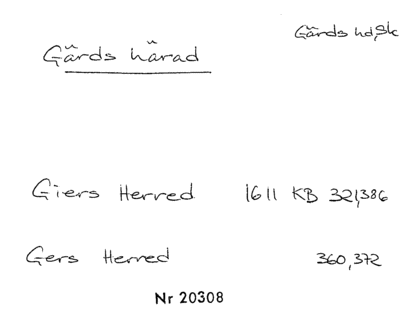 Gärds hd, Sk
Gärds härad
Giers Herred 1611 KB 321,386
Gers Herred 360,372
Nr 20308